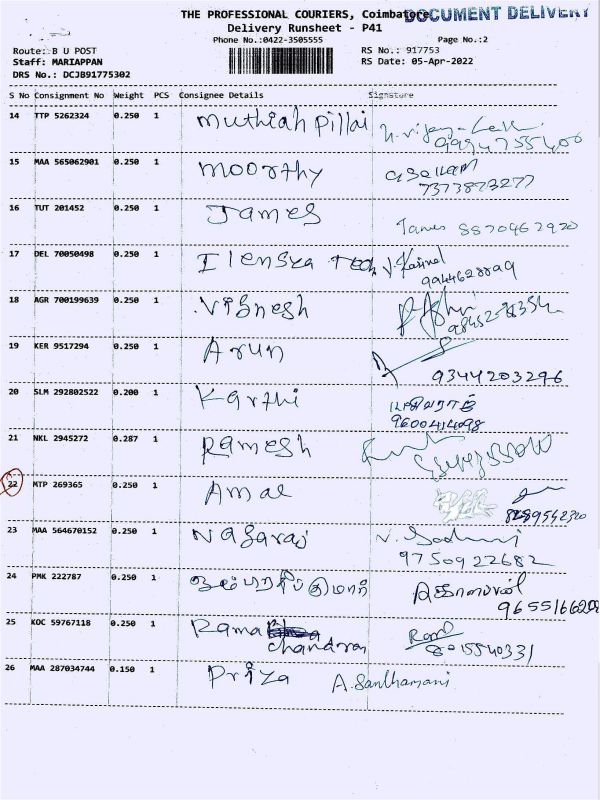 THE PROFESSIONAL COURIERS, Coimbatore
DOCUMENT DELIVERY
Delivery Runsheet - P41
Phone No.:0422-3505555
Page No.:2
Route: B U POST
RS No.: 917753
Staff: MARIAPPAN
RS Date: 05-Apr-2022
DRS No.: DCJB91775302
S No Consignment No Weight PCS Consignee Details Signature
14 TTP 5262324 0.250 1 Muthiah Pillai
15 MAA 565062901 0.250 1 Moorthy
7373873277
16 TUT 201452 0.250 1 James James 8870462920
17 DEL 70050498 0.250 1 Ilensya Tech
18 AGR 700199639 0.250 1 Vignesh
19 KER 9517294 0.250 1 Arun
9344203296
20 SLM 292802522 0.200 1 Karthi
9600414098
21 NKL 2945272 0.287 1 Ramesh
22 MTP 269365 0.250 1 Amal
23 MAA 564670152 0.250 1 Nagaraj
9750922682
24 PMK 222787 0.250 1
25 KOC 59767118 0.250 1 Rama
chandran 8015540331
26 MAA 287034744 0.150 1 Priya A. Santhamani